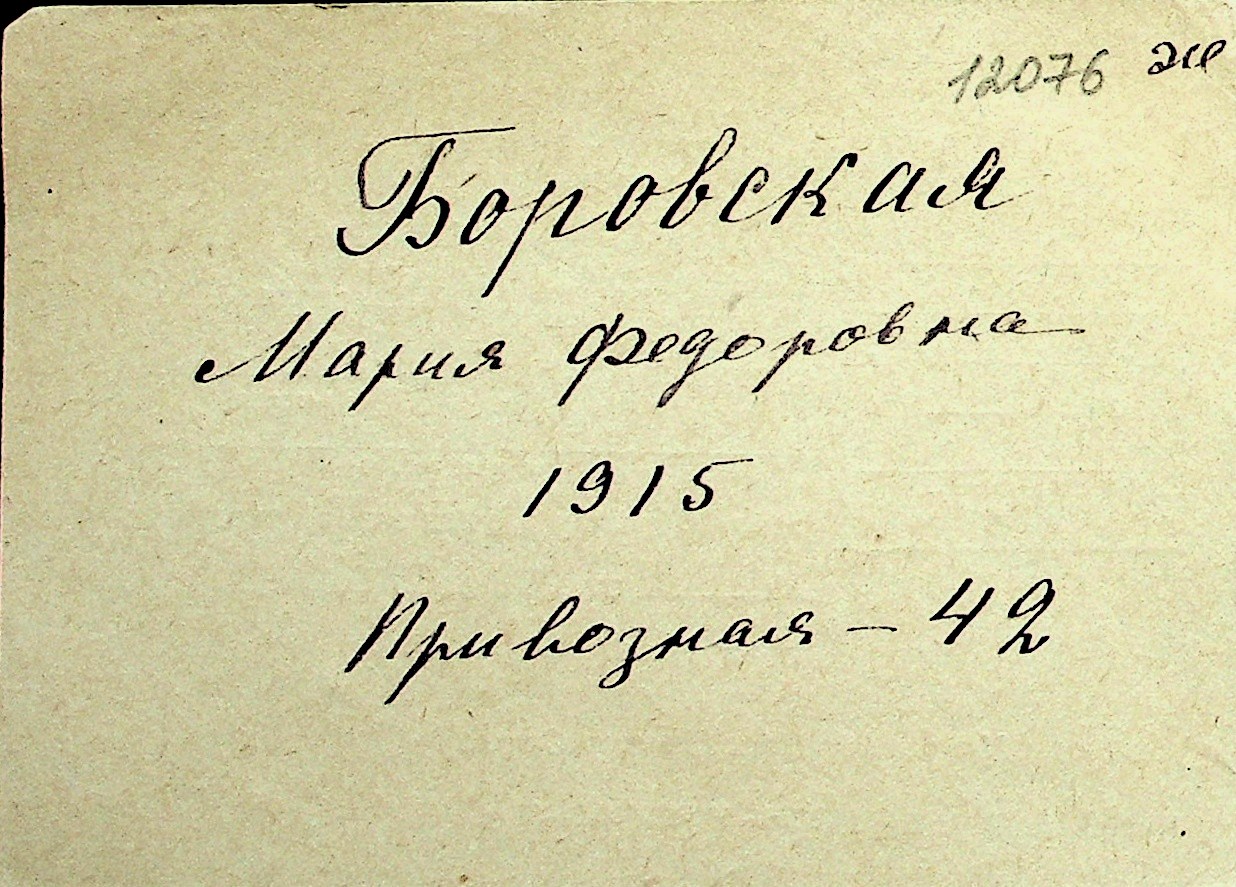 12076 ж
Боровская
Мария Федоровна
1915
Привозная - 42